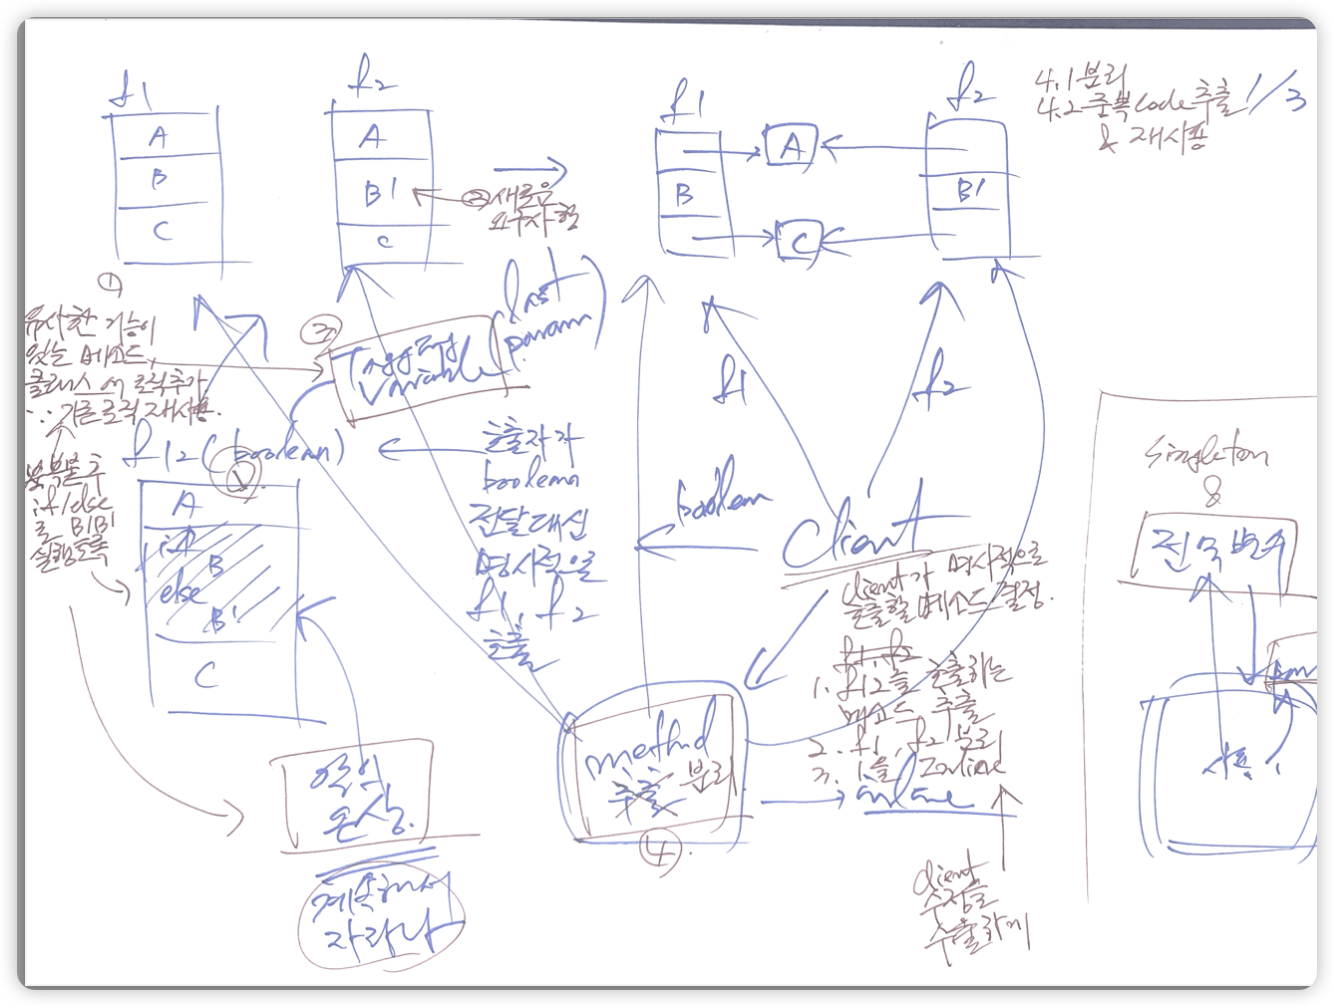 f1
A
B
C
f2
A
B'
C
② 새로운
요구사항
f1
B
A
C
f2
B'
4.1 분리
4.2 중복 Code 추출
& 재사용
1/3
①
유사한 기능이
있는 메소드,
클래스에 로직추가
∵ 기존 로직 재사용.
③
Tagging
Variable
(last
param)
f12(boolean)
②
A
if
B
else
B'
C
if/else
로 B/B'
실행토록
호출자가
boolean
전달대신
명시적으로
f1, f2
호출
f1
f2
boolean
Client
client가 명시적으로
호출할 메소드 결정.
f1, f2
1. f12를 호출하는
메소드 추출
2. f1, f2 분리
3. 1을 Inline
inline
method
추출 분리
④
client
수정을
악의
온상.
계속해서
자라나
Singleton
&
전역 변수
사용